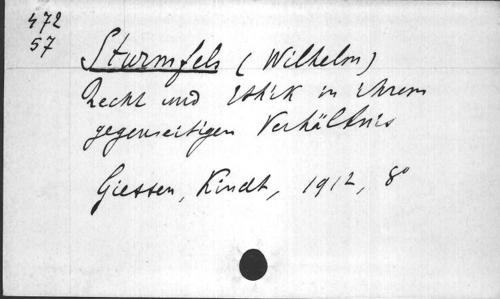 472
57
Sturmfels (Wilhelm)
Recht und Ethik in ihrem
gegenseitigen Verhältnis
Giessen, Kindt, 1912, 8°